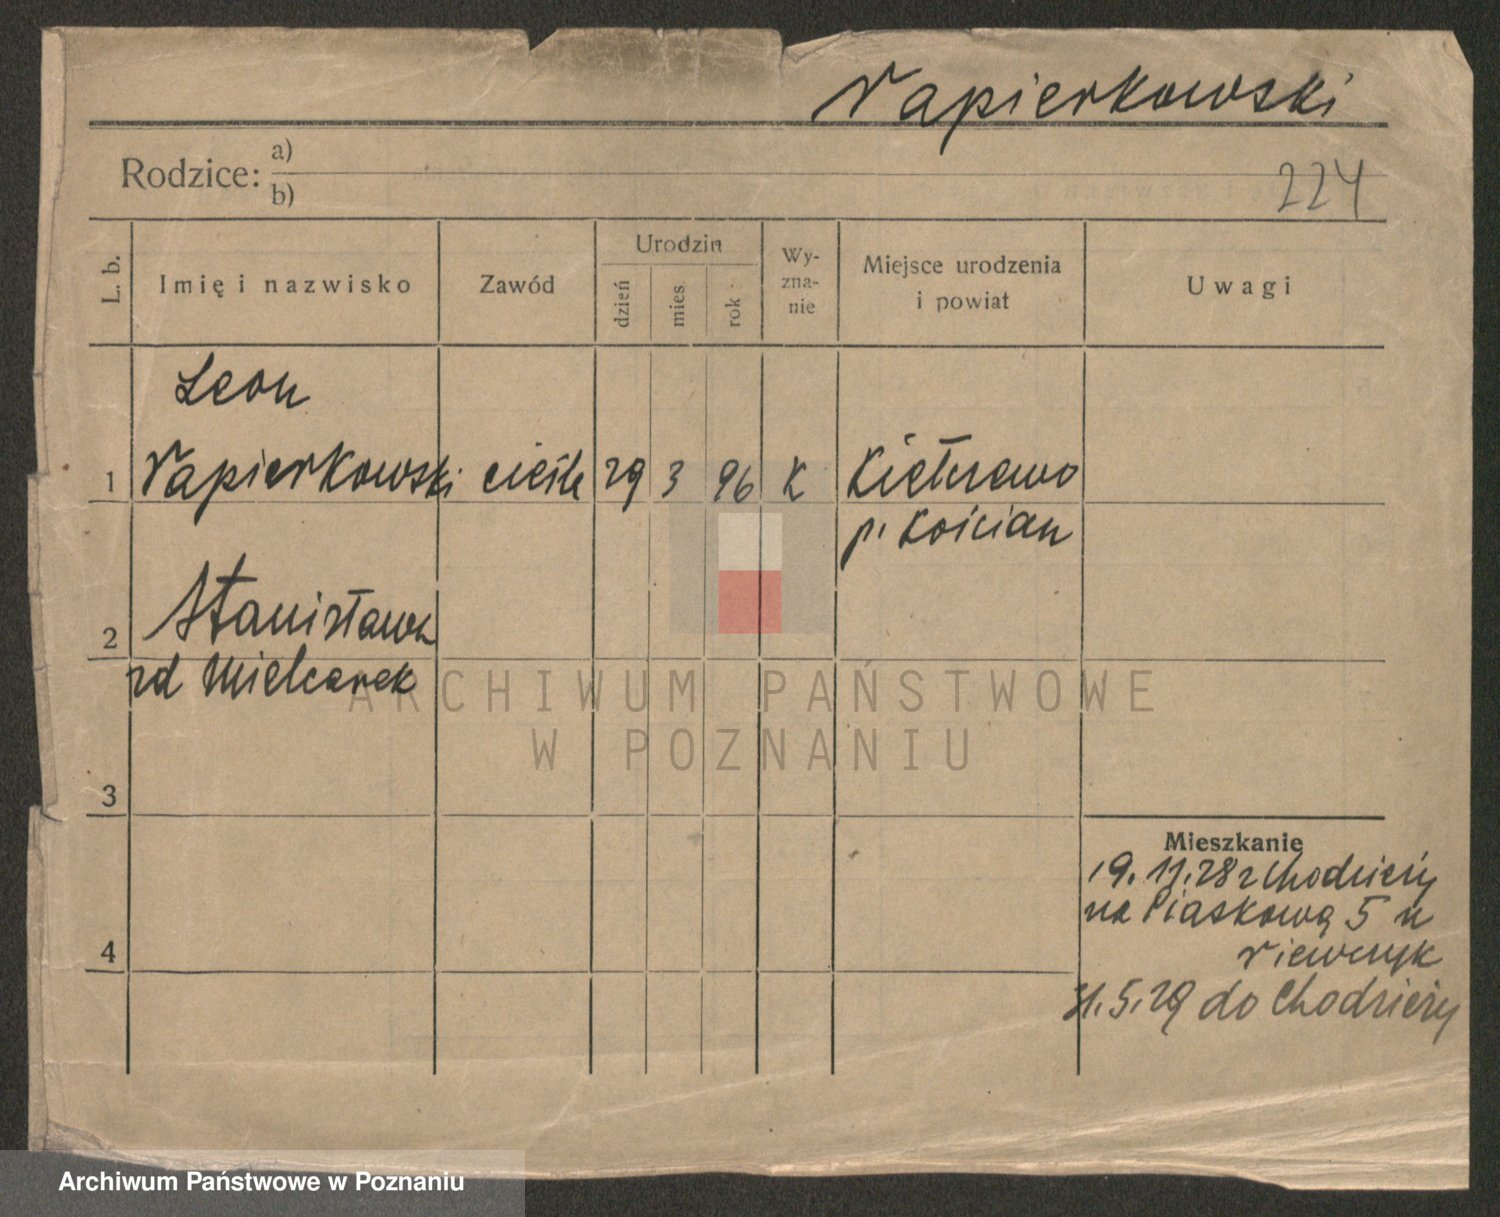 Napierkowski
Rodzice: a)
b)
224
L. b.
Imię i nazwisko
Zawód
Urodzin
dzień
mies.
rok
Wy-
zna-
nie
Miejsce urodzenia
i powiat
Uwagi
Leon
1 Napierkowski cieśla 29 3 96 K Kiełczewo
p. Kościan
2 Stanisława
zd Mielcarek
ARCHIWUM PAŃSTWOWE
W POZNANIU
3
Mieszkanie
19.11.28 z Chodzieży
na Piaskową 5 u
4
31.5.29 do Chodzieży
Archiwum Państwowe w Poznaniu